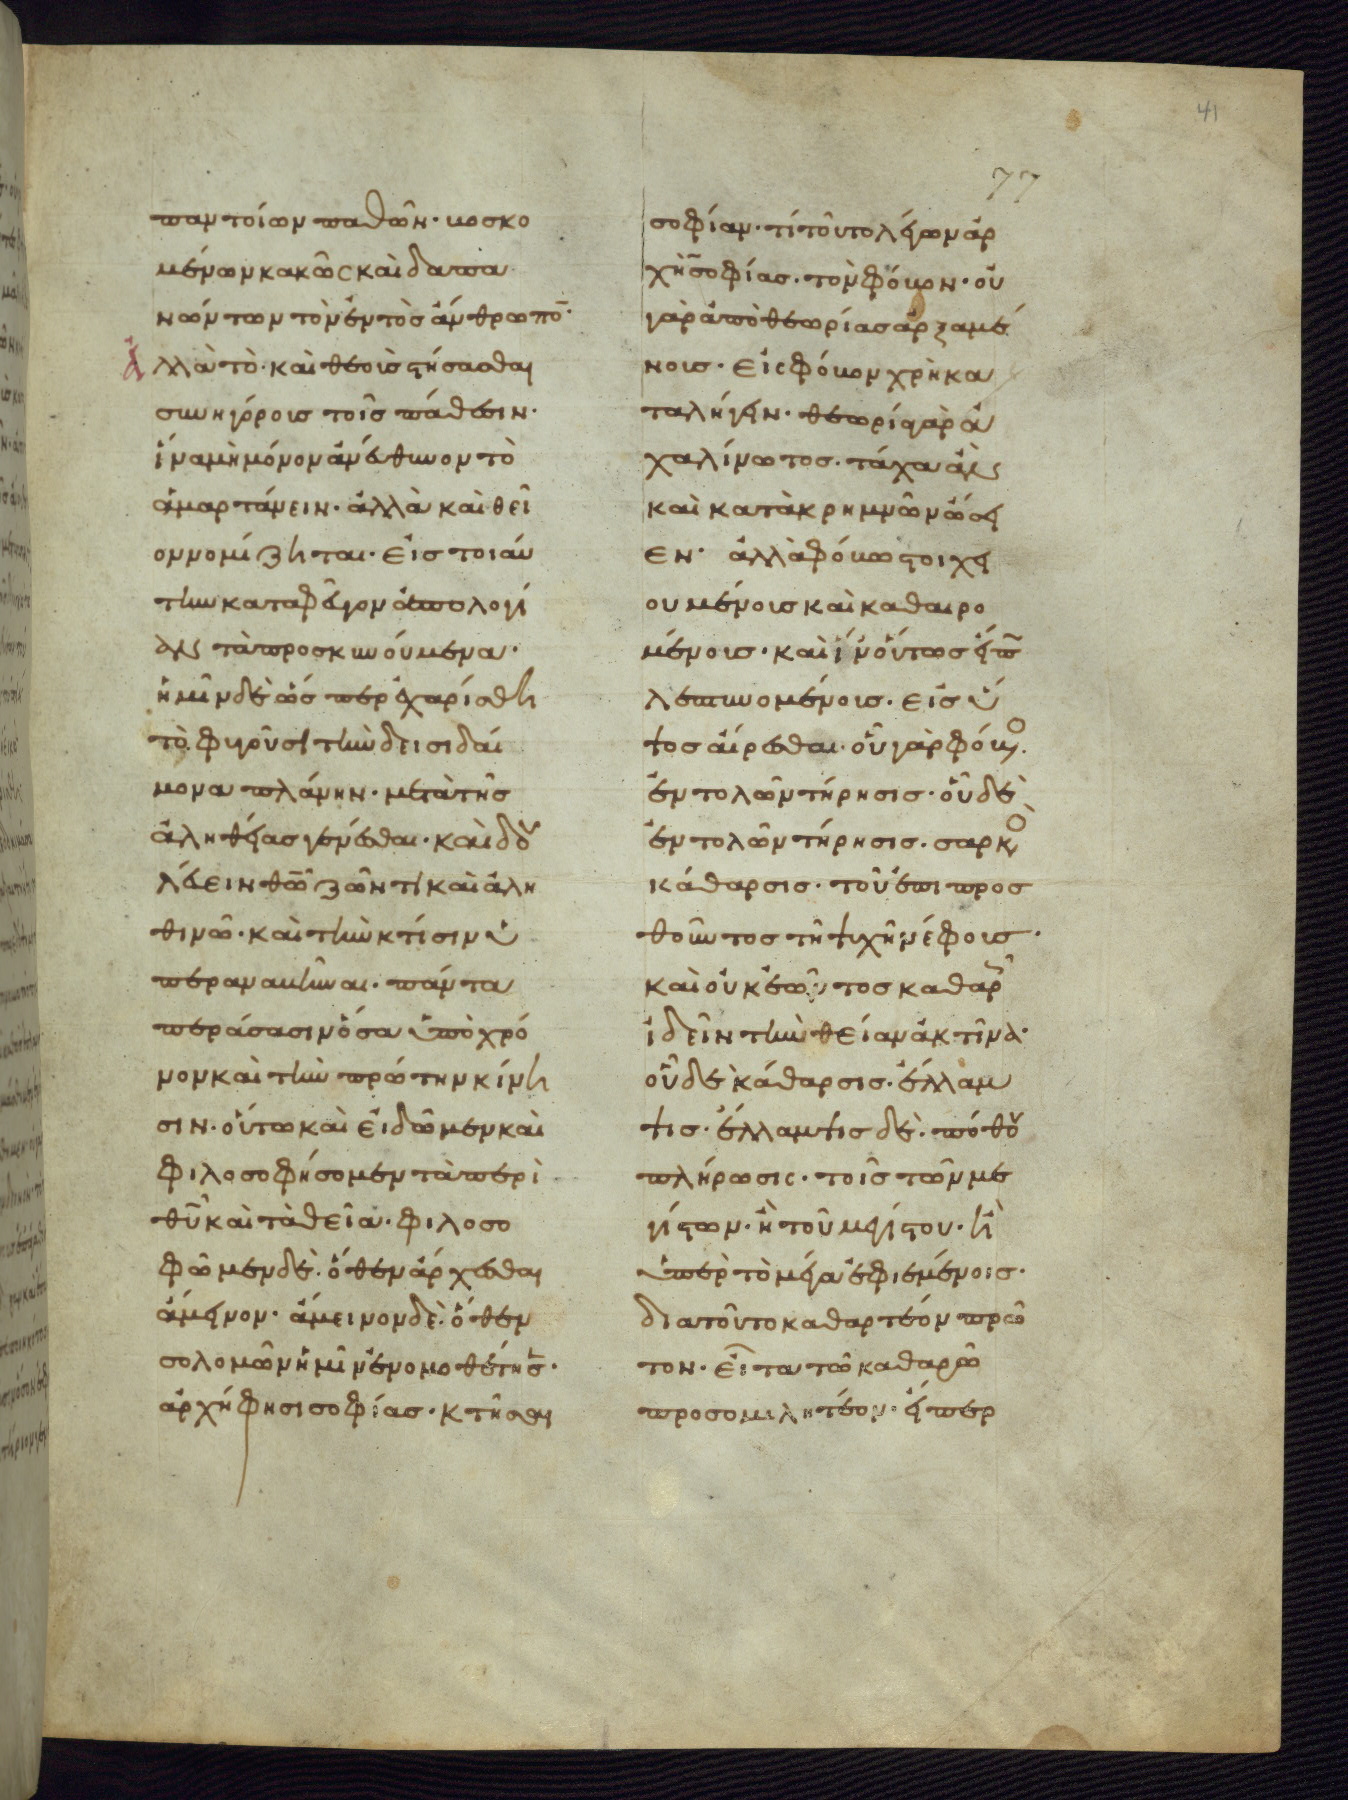 παντοίων παθῶν· βοσκο
μένων κακῶς καὶ δαπα
νώντων τὸν ἐντὸς ἄνθρωπο̅·
ἀλλὰ τὸ· καὶ θεοὺς στήσασθαι
συνηγόροις τοῖς πάθεσιν·
ἵνα μὴ μόνον ἀνεύθυνον τὸ
ἁμαρτάνειν· ἀλλὰ καὶ θεῖ
ον νομίζηται· εἰς τοιαύ
την καταφεῦγον ἀπολογί
αν τὰ προσκυνούμενα·
ἡμῖν δὲ ὥσπερ ἐχαρίσθη
τὸ φυγοῦσι τὴν δεισιδαί
μονα πλάνην· μετὰ τῆς
ἀληθείας γενέσθαι· καὶ δου
λεύειν θω̅ ζῶντι καὶ ἀλη
θινῶ· καὶ τὴν κτίσιν ὑ
περαναβῆναι· πάντα
περάσασιν ὅσα ὑπὸ χρό
νον καὶ τὴν πρώτην κίνη
σιν· οὕτω καὶ εἰδῶμεν καὶ
φιλοσοφήσομεν τὰ περὶ
θυ̅ καὶ τὰ θεῖα· φιλοσο
φῶμεν δὲ· ὅθεν ἄρχεσθαι
ἄμεινον· ἄμεινον δὲ· ὅθεν
σολομῶν ἡμῖν ἐνομοθέτησε̅·
ἀρχή φησι σοφίας· κτῆσαι
σοφίαν· τί τοῦτο λέγων ἀρ
χὴ̅ σοφίας· τὸν φόβον· οὐ
γὰρ ἀπὸ θεωρίας ἀρξαμέ
νοις· εἰς φόβον χρὴ κα
ταλήγειν· θεωρία γὰρ ἀ
χαλίνωτος· τάχα ἂν
καὶ κατὰ κρημνῶν ὤσει
εν· ἀλλὰ φόβω στοιχει
ουμένοις καὶ καθαιρο
μένοις· καὶ ἵν οὕτως εἴπ̅
λεπτυνομένοις· εἰς ὕ
ψος αἴρεσθαι· οὗ γὰρ φόβος·
ἐντολῶν τήρησις· οὗ δὲ
ἐντολῶν τήρησις· σαρκὸς
κάθαρσις· τοῦ ἐπιπροσ
θοῦντος τῆ ψυχῆ νέφους·
καὶ οὐκ ἐῶντος καθαρῶς
ἰδεῖν τὴν θείαν ἀκτῖνα·
οὗ δὲ κάθαρσις· ἔλλαμ
ψις· ἔλλαμψις δὲ· πόθου
πλήρωσις· τοῖς τῶν με
γίστων· ἢ τοῦ μεγίστου· ἢ
ὑπὲρ τὸ μέγα ἐφιεμένοις·
διατοῦτο καθαρτέον πρῶ
τον· εἶτα τῶ καθαρῶ
προσομιλητέον· εἴπερ
77
41